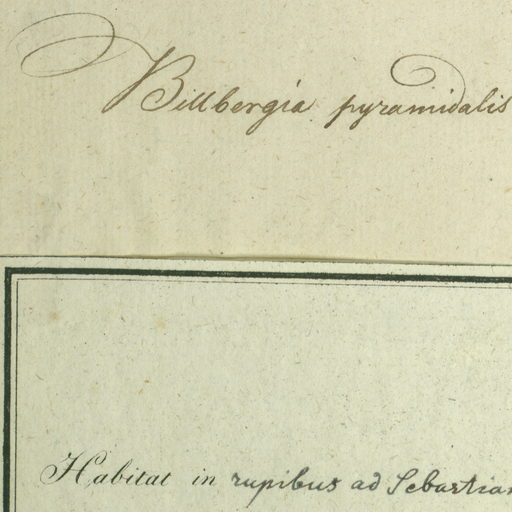 Billbergia pyramidalis
Habitat in rupibus ad Sebastian